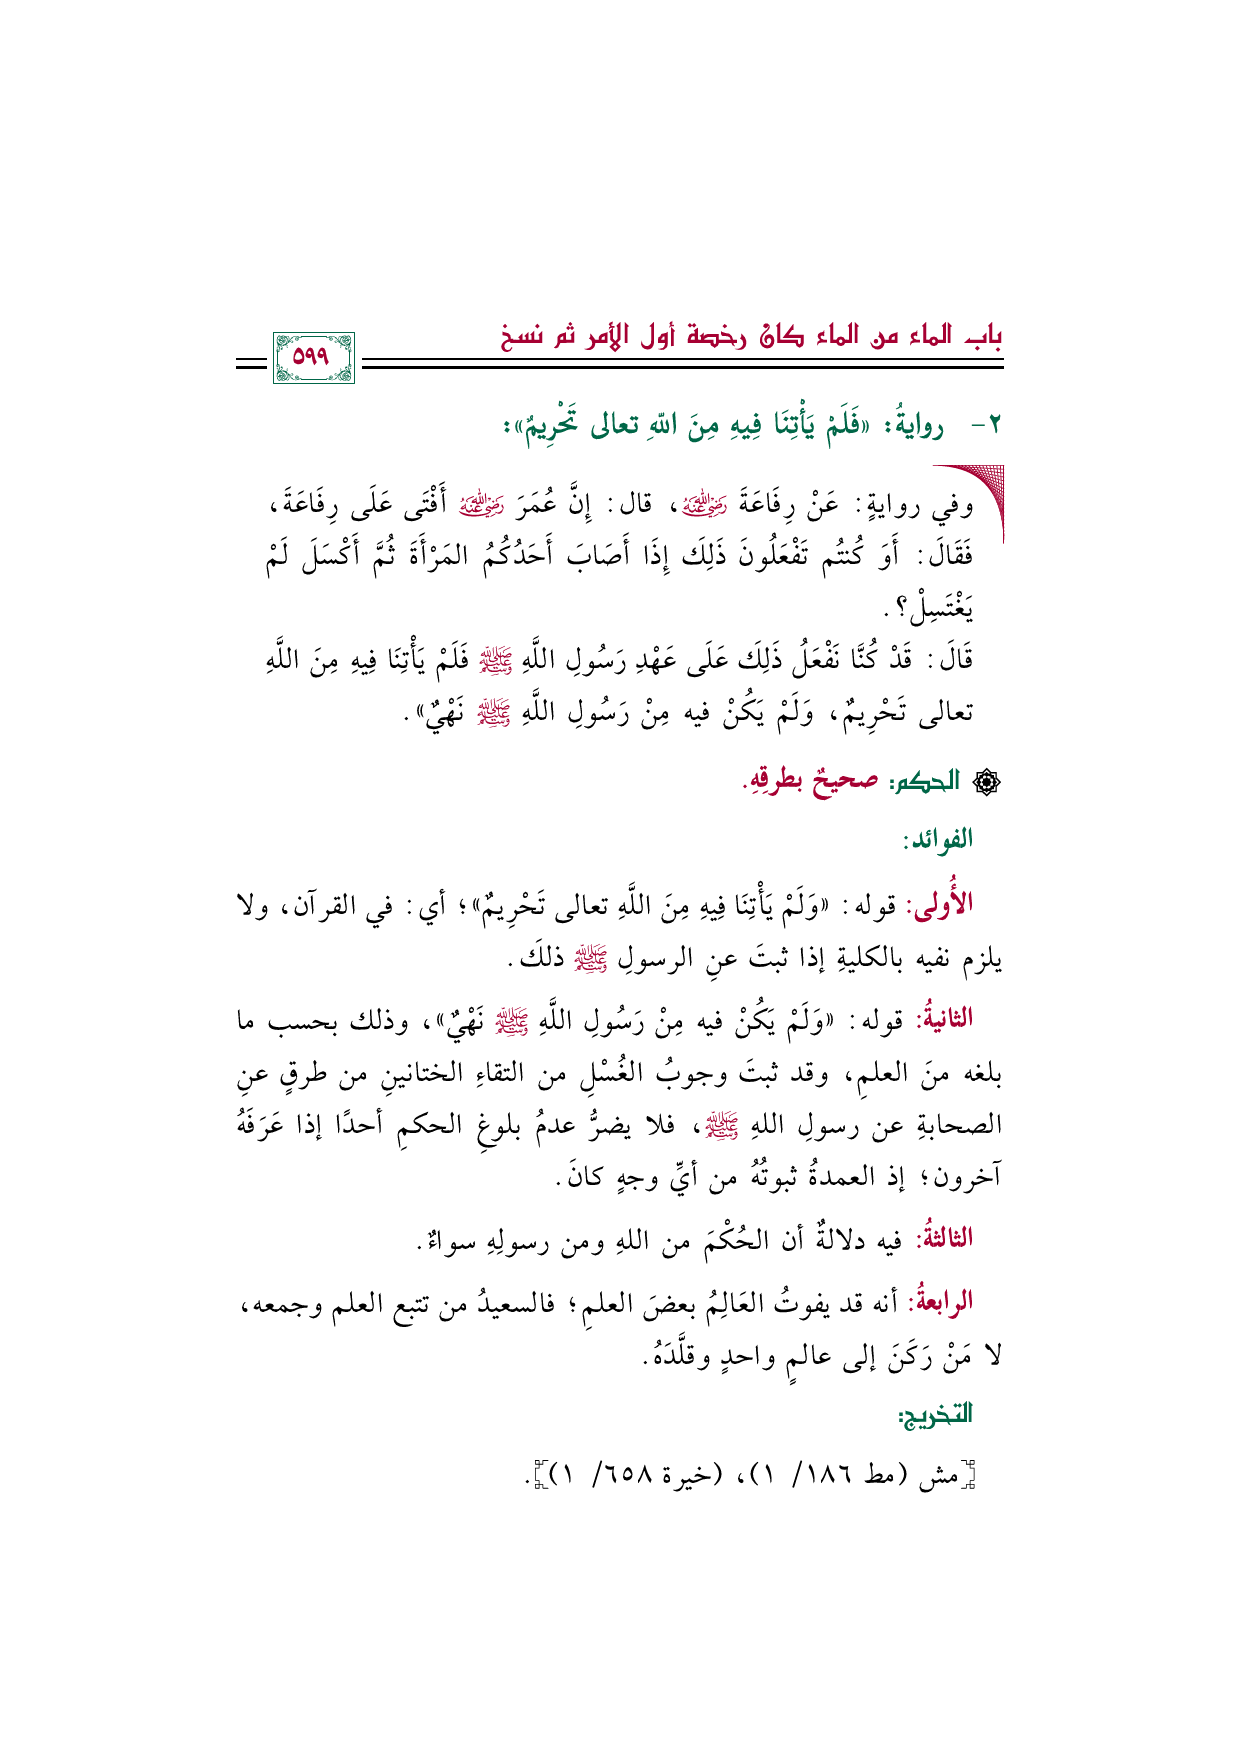 باب الماء من الماء كان رخصة أول الأمر ثم نسخ
٥٩٩
٢- روايةُ: «فَلَمْ يَأْتِنَا فِيهِ مِنَ اللهِ تعالى تَحْرِيمٌ»:
وفي روايةٍ: عَنْ رِفَاعَةَ رضي الله عنه، قال: إِنَّ عُمَرَ رضي الله عنه أَفْتَى عَلَى رِفَاعَةَ،
فَقَالَ: أَوَ كُنتُم تَفْعَلُونَ ذَلِكَ إِذَا أَصَابَ أَحَدُكُمُ المَرْأَةَ ثُمَّ أَكْسَلَ لَمْ
يَغْتَسِلْ؟.
قَالَ: قَدْ كُنَّا نَفْعَلُ ذَلِكَ عَلَى عَهْدِ رَسُولِ اللَّهِ ﷺ فَلَمْ يَأْتِنَا فِيهِ مِنَ اللَّهِ
تعالى تَحْرِيمٌ، وَلَمْ يَكُنْ فيه مِنْ رَسُولِ اللَّهِ ﷺ نَهْيٌ».
الحكم: صحيحٌ بطرقِهِ.
الفوائد:
الأُولى: قوله: «وَلَمْ يَأْتِنَا فِيهِ مِنَ اللَّهِ تعالى تَحْرِيمٌ»؛ أي: في القرآن، ولا
يلزم نفيه بالكليةِ إذا ثبتَ عنِ الرسولِ ﷺ ذلكَ.
الثانيةُ: قوله: «وَلَمْ يَكُنْ فيه مِنْ رَسُولِ اللَّهِ ﷺ نَهْيٌ»، وذلك بحسب ما
بلغه منَ العلمِ، وقد ثبتَ وجوبُ الغُسْلِ من التقاءِ الختانينِ من طرقٍ عنِ
الصحابةِ عن رسولِ اللهِ ﷺ، فلا يضرُّ عدمُ بلوغِ الحكمِ أحدًا إذا عَرَفَهُ
آخرون؛ إذ العمدةُ ثبوتُهُ من أيِّ وجهٍ كانَ.
الثالثةُ: فيه دلالةٌ أن الحُكْمَ من اللهِ ومن رسولِهِ سواءٌ.
الرابعةُ: أنه قد يفوتُ العَالِمُ بعضَ العلمِ؛ فالسعيدُ من تتبع العلم وجمعه،
لا مَنْ رَكَنَ إلى عالمٍ واحدٍ وقلَّدَهُ.
التخريج:
[مش (مط ١٨٦/ ١)، (خيرة ٦٥٨/ ١)].